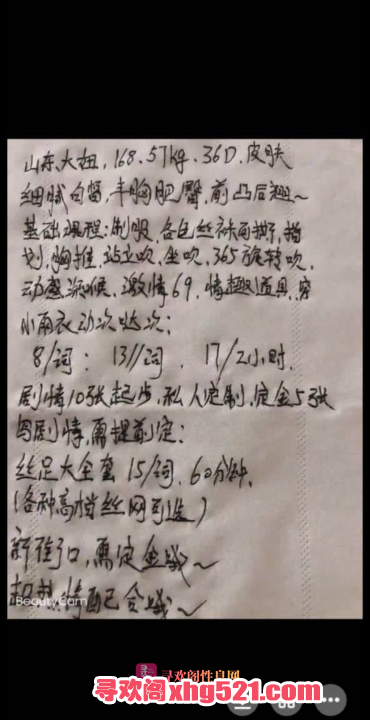 山东大妞,168.57kg.36D.皮肤
细腻白皙,丰胸肥臀,前凸后翘~
基础课程:制服,各色丝袜可撕,指
划,胸推,站立吹,坐吹,365旋转吹,
动感深喉,激情69,情趣道具,穿
小雨衣动次哒次;
8/词: 13//词. 17/2小时.
剧情10张起步,私人定制,定金5张
剧情,需提前定:
丝足大全套 15/词.60分钟.
(各种高档丝网可选)
新街口,需定金哦~
情自己含哦~
BeautyCam
寻欢阁性息网
寻欢阁xhg521.com